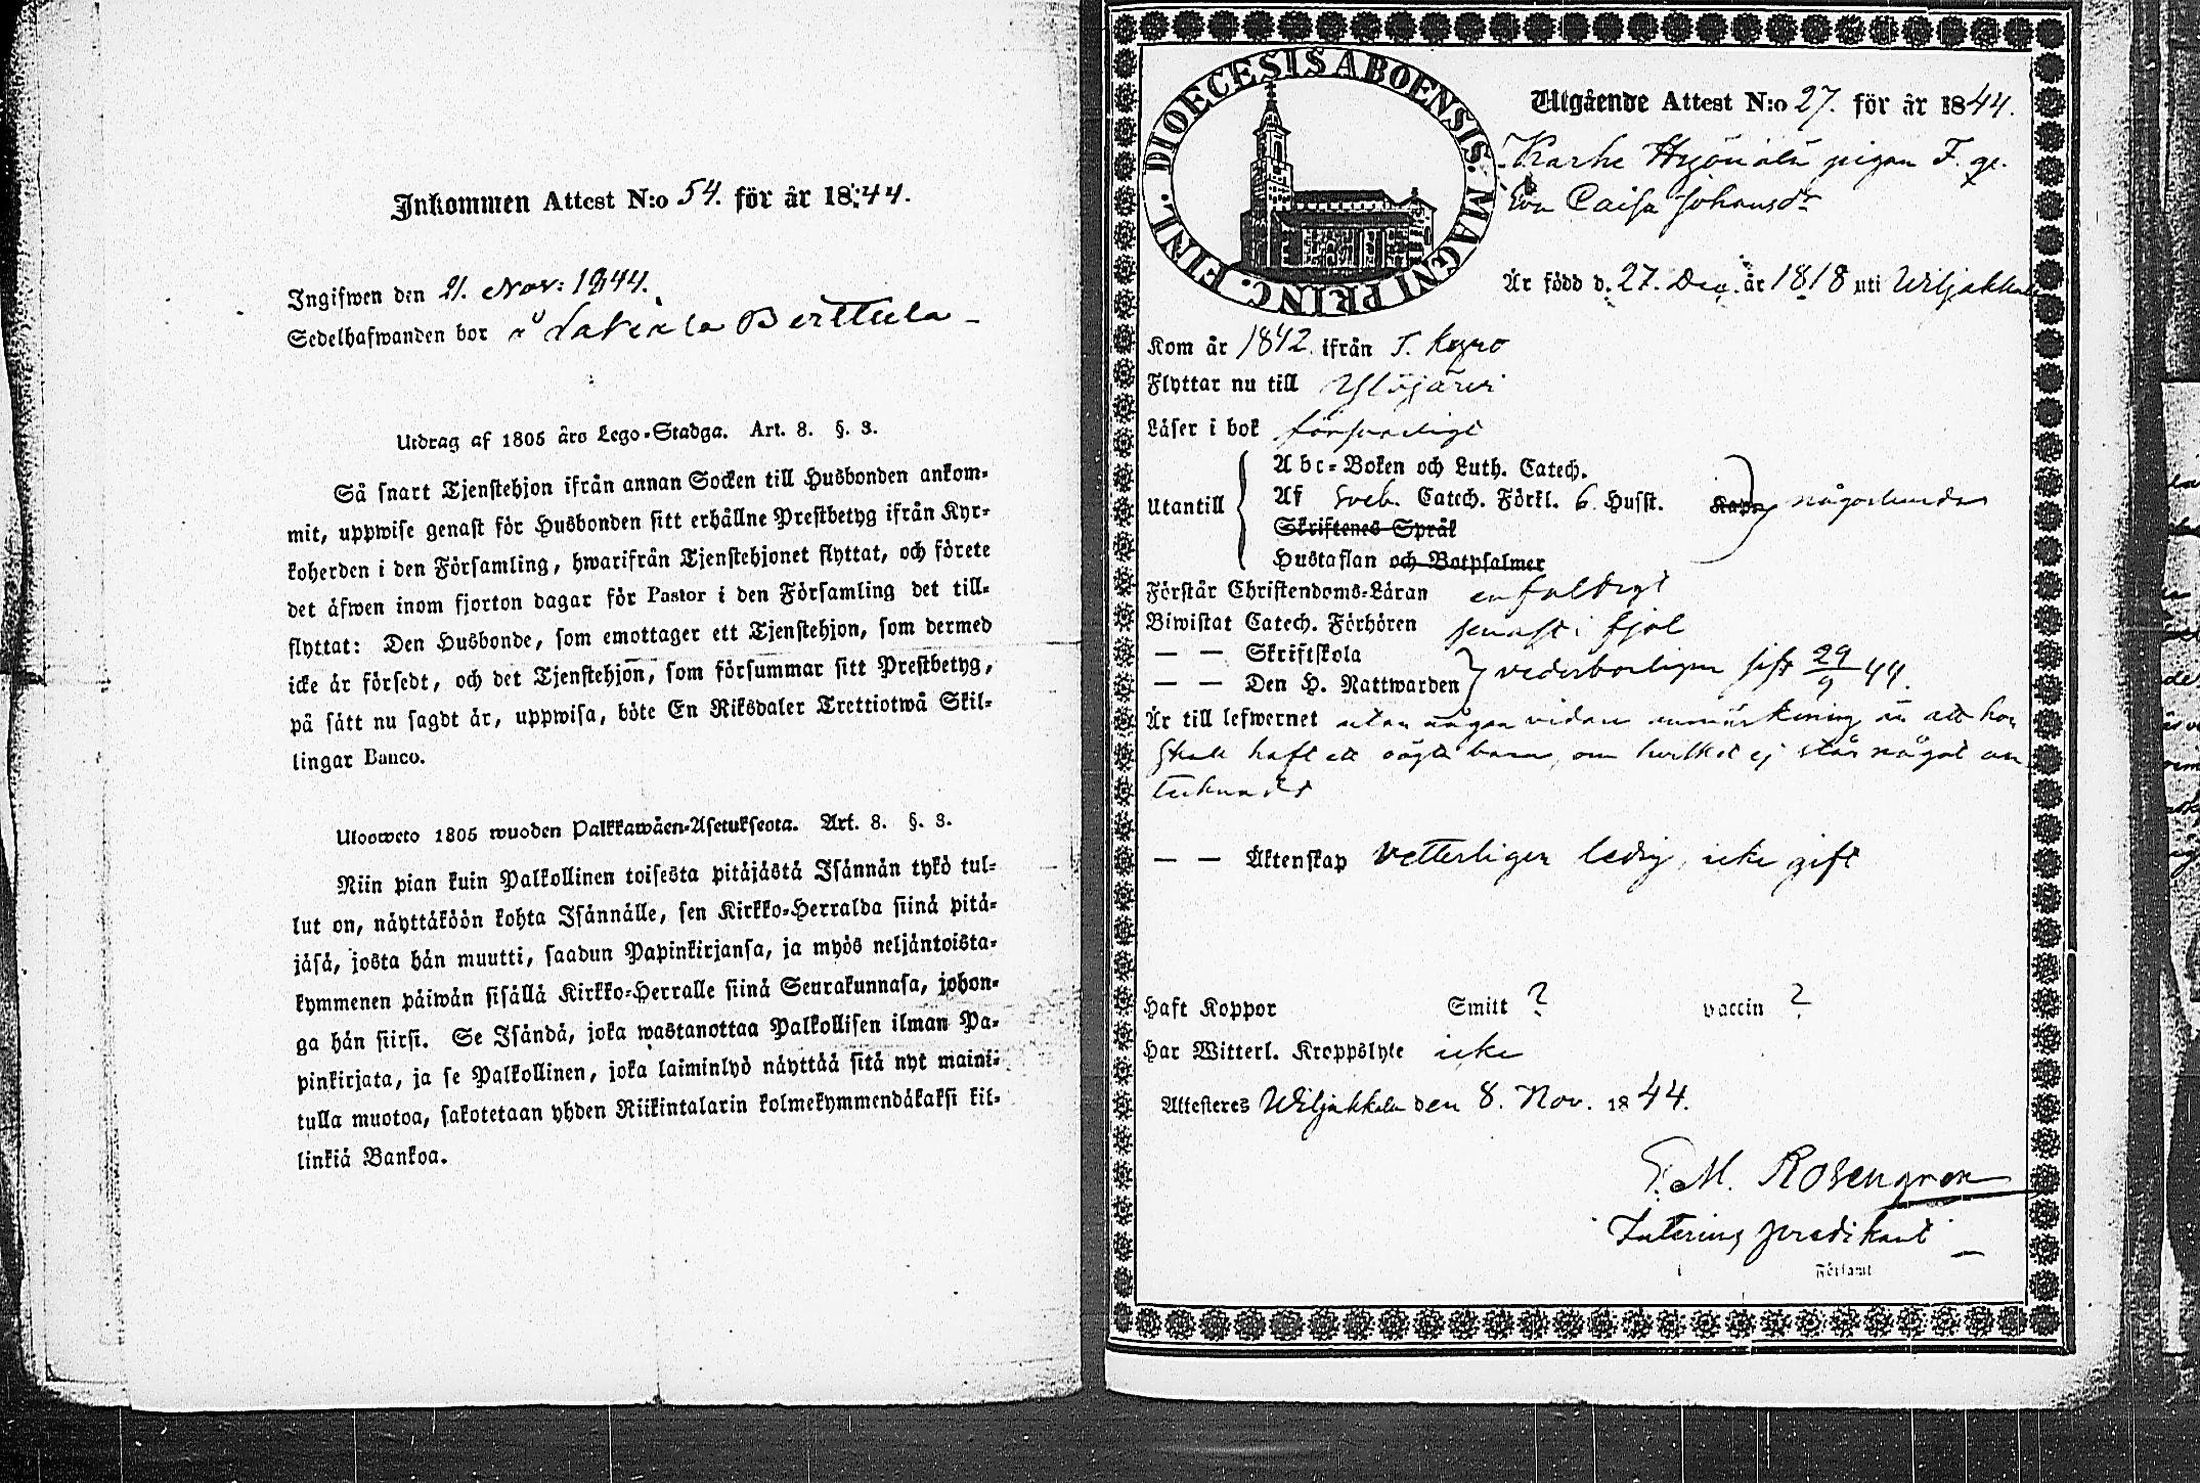 Inkommen Attest N:o 54. för år 1844.
Ingifwen den 21. Nov: 1844.
Sedelhafwanden bor å Lakiala Berttula
Utdrag af 1805 års Lego-Stadga. Art. 8. §. 3.
Så snart Tjenstehjon ifrån annan Socken till Husbonden ankom-
mit, uppwise genast för Husbonden sitt erhållne Prestbetyg ifrån Kyr-
koherden i den Församling, hwarifrån Tjenstehjonet flyttat, och förete
det äfwen inom fjorton dagar för Pastor i den Församling det till-
flyttat: Den Husbonde, som emottager ett Tjenstehjon, som dermed
icke är försedt, och det Tjenstehjon, som försummar sitt Prestbetyg,
på sätt nu sagdt är, uppwisa, böte En Riksdaler Trettiotwå Skil-
lingar Banco.
Uloosweto 1805 wuoden Palkkawäen-Asetuksesta. Art. 8. §. 3.
Niin pian kuin Palkollinen toisesta pitäjästä Isännän tykö tul-
lut on, näyttäköön kohta Isännälle, sen Kirkko-Herralda siinä pitä-
jäsä, josta hän muutti, saadun Papinkirjansa, ja myös neljäntoista-
kymmenen päiwän sisällä Kirkko-Herralle siinä Seurakunnasa, johon-
ga hän siirsi. Se Isändä, joka wastanottaa Palkollisen ilman Pa-
pinkirjata, ja se Palkollinen, joka laiminlyö näyttää sitä nyt maini-
tulla muotoa, sakotetaan yhden Riikintalarin kolmekymmendäkaksi kil-
linkiä Bankoa.
DIOECESIS ABOENSIS. MAGNI PRINC. FINL.
Utgående Attest N:o 27. för år 1844.
Karhe Hyönälä pigan F. q.
Eva Caisa Johansdr
Är född d. 27. Dec. år 1818 uti Wiljakkala
Kom år 1842. ifrån T. Kyro
Flyttar nu till Ylöjärvi
Läser i bok försvarligt
Utantill
Abc-Boken och Luth. Catech.
Af Sveb. Catech. Förkl. 6 Husst. Kap. någorlunda
Skriftenes Språk
Hustaflan och Botpsalmer
Förstår Christendoms-Läran enfaldigt
Biwistat Catech. Förhören senast i fjol
— — Skriftskola
— — Den H. Nattwarden vederbörligen sist 29/9 44.
Är till lefwernet utan någon vidare anmärkning än att hon
skall haft ett oägta barn, om hvilket ej står något an
tecknadt
— — Äktenskap vetterligen ledig, icke gift
Haft Koppor Smitt ? vaccin ?
Har Witterl. Kroppslyte icke
Attesteres Wiljakkala den 8. Nov. 1844.
M. Rosengren
Interims predikant
Församl